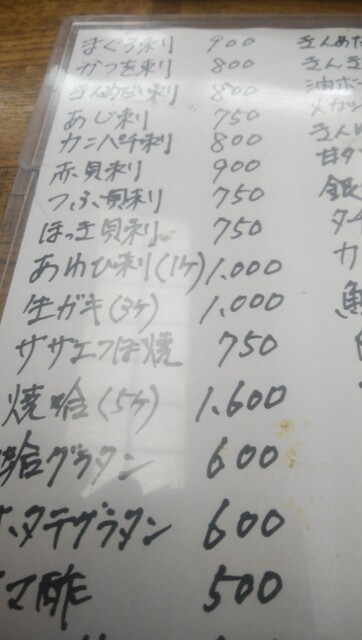 まぐろ刺 900
かつを刺 800
きんめだい刺 800
あじ刺 750
カンパチ刺 800
赤貝刺 900
つぶ貝刺 750
ほっき貝刺 750
あわび刺(1ヶ) 1.000
生ガキ(3ヶ) 1.000
サザエつぼ焼 750
焼哈(5ヶ) 1.600
哈グラタン 600
タテグラタン 600
マ酢 500
きんめだ
きんき
油ボ
メカジ
きん
甘ダ
銀
ター
カ